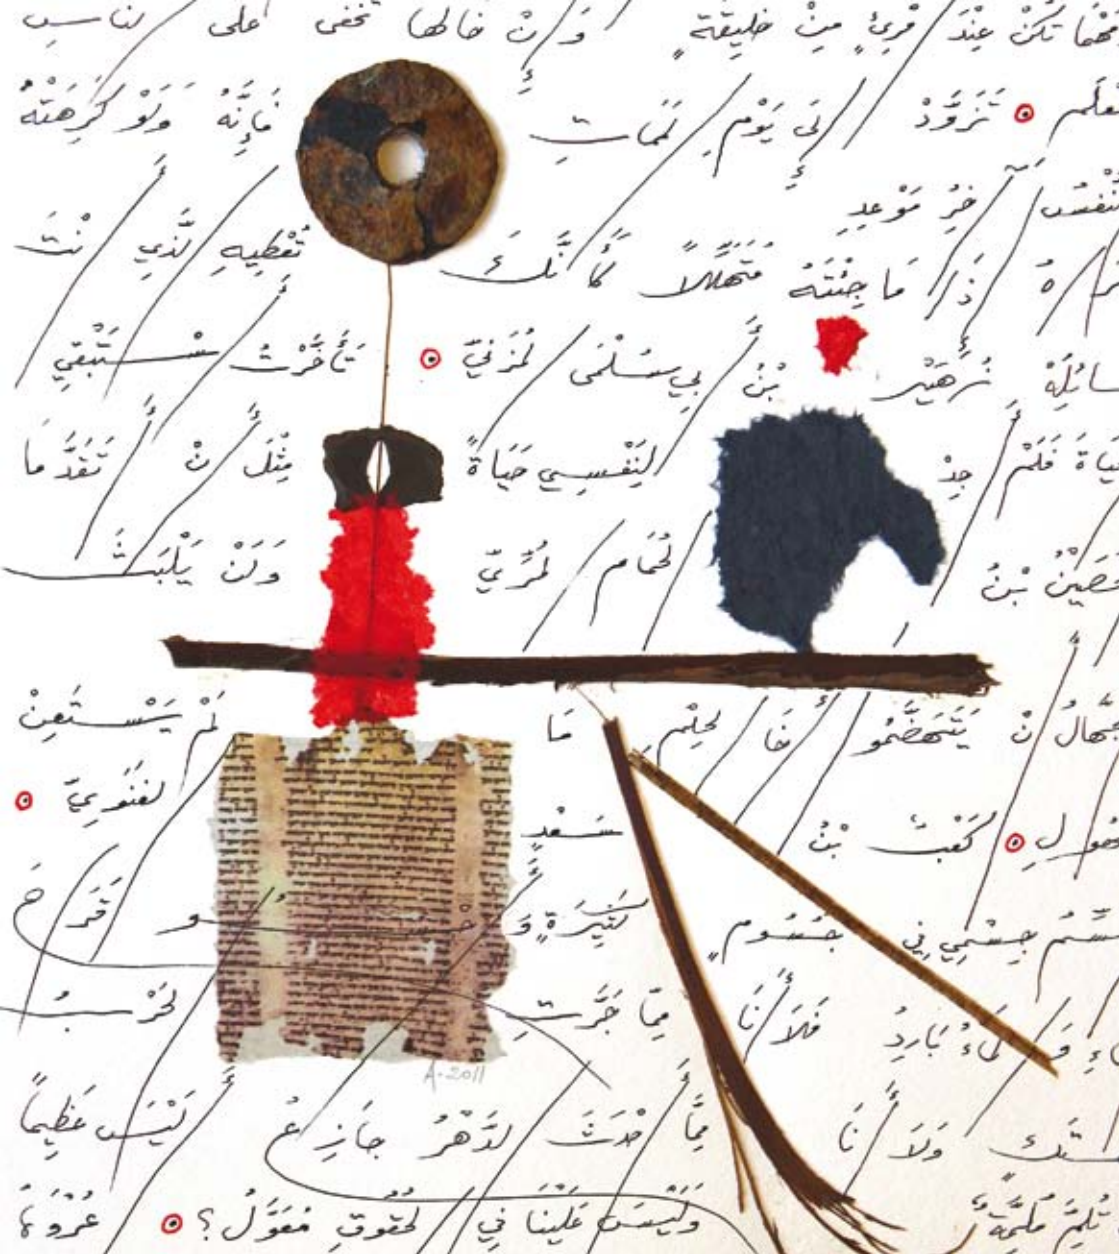 مَهْمَا تَكُنْ عِنْدَ امْرِئٍ مِنْ خَلِيقَةٍ وَإِنْ خالها تخفى على الناس
تُعْلَمِ ⊙ تَزَوَّدْ إِلَى يَوْمِ الْمَمَاتِ فَإِنَّهُ وَلَوْ كَرِهَتْهُ
النَّفْسُ آخِرُ مَوْعِدِ
تَرَاهُ إِذَا مَا جِئْتَهُ مُتَهَلِّلاً كَأَنَّكَ تُعْطِيهِ الَّذِي أَنْتَ
سَائِلُهْ زُهَيْرُ بْنُ أَبِي سُلْمَى الْمُزَنِيّ ⊙ تَأَخَّرْتُ أَسْتَبْقِي
الْحَيَاةَ فَلَمْ أَجِدْ لِنَفْسِي حَيَاةً مِثْلَ أَنْ أَتَقَدَّمَا
الْحُصَيْنُ بْنُ الْحُمَامِ الْمُرِّيّ وَلَنْ يَلْبَثَ
الْجُهَّالُ أَنْ يَتَهَضَّمُوا أَخَا الْحِلْمِ مَا لَمْ يَسْتَعِنْ
بِجَهُولِ ⊙ كَعْبُ بْنُ سَعْدٍ الْغَنَوِيّ ⊙
أُقَسِّمُ جِسْمِي فِي جُسُومٍ كَثِيرَةٍ وَأَحْسُو قَرَاحَ
الْمَاءِ وَالْمَاءُ بَارِدُ فَلَا أَنَا مِمَّا جَرَّتِ الْحَرْبُ
وَلَا أَنَا مِمَّا أَحْدَثَ الدَّهْرُ جَازِعُ أَلَيْسَ عَظِيماً
تُلِمَّ مُلِمَّةٌ وَلَيْسَ عَلَيْنَا فِي الْحُقُوقِ مُعَوَّلُ؟ ⊙ عُرْوَةُ
A. 2011